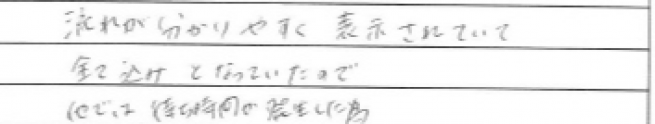 流れが分かりやすく 表示されていて
全て込み となっていたので
他では 待ち時間が発生した為